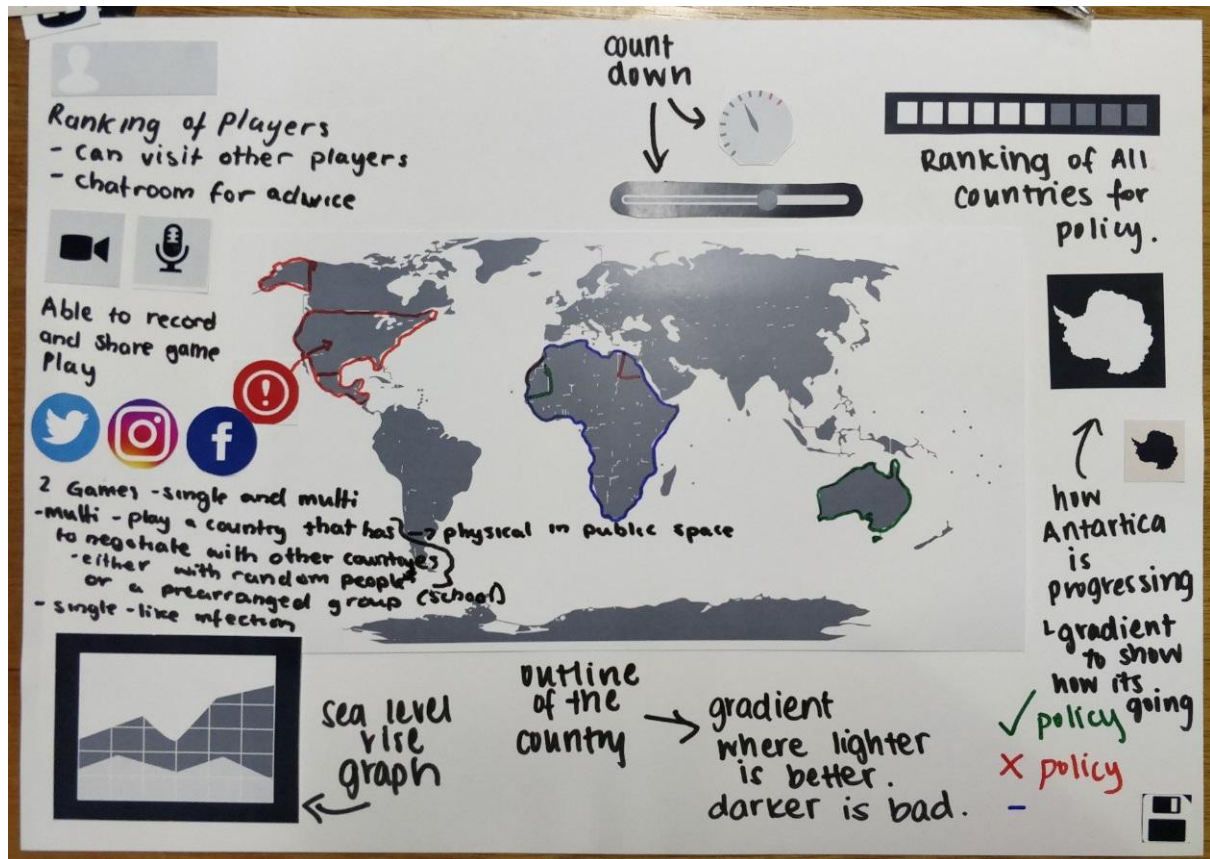 count
down
Ranking of Players
- can visit other players
- chatroom for adwice
Ranking of All
countries for
policy.
Able to record
and share game
Play
!
f
2 Games - single and multi
- multi - play a country that has → physical in public space
to negotiate with other countryes
- either with random people*
or a prearranged group (school)
- single - like infection
how
Antartica
is
progressing
gradient
to show
how its
going
sea level
rise
graph
outline
of the
country
gradient
where lighter
is better.
darker is bad.
✓ policy
X policy
–